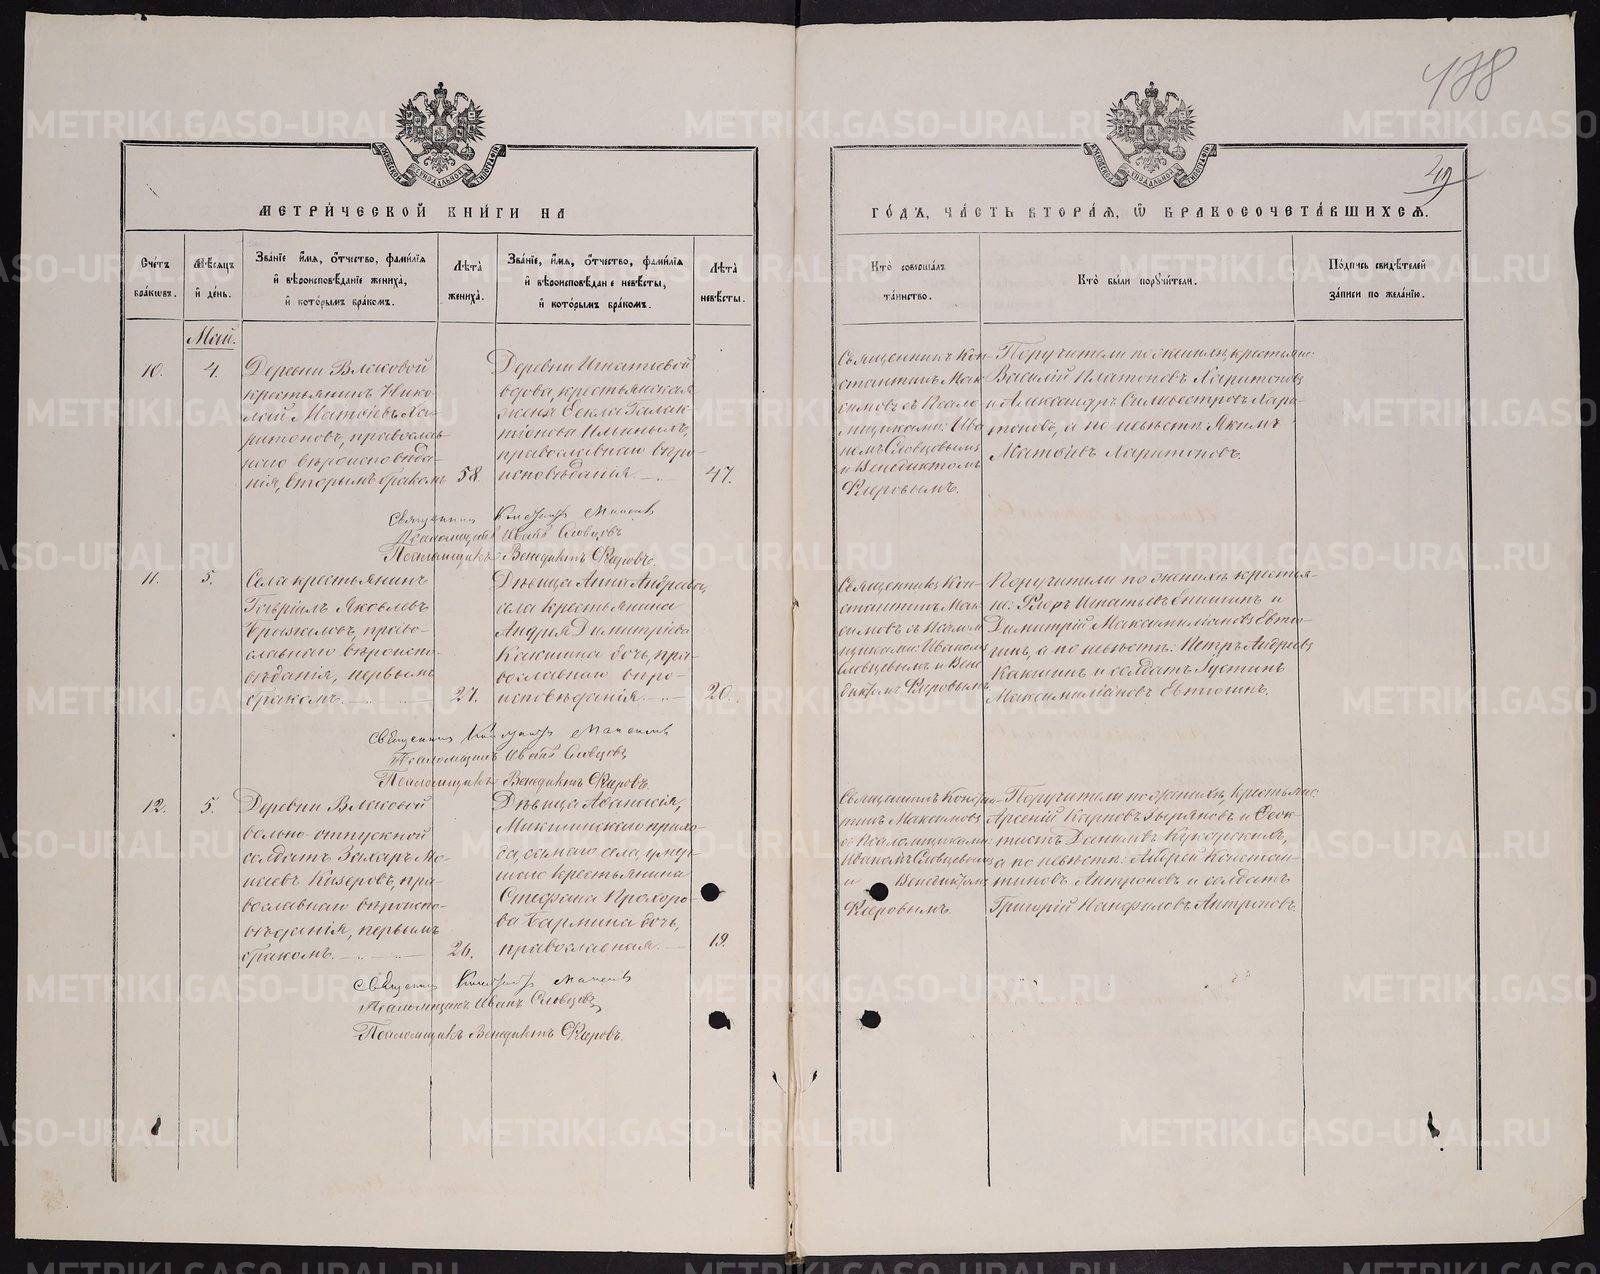 178
49
МЕТРИ́ЧЕСКОЙ КНИ́ГИ НА
ГО́ДЪ, ЧА́СТЬ ВТОРА́Я, Ѿ БРАКОСОЧЕТА́ВШИХСЯ.
Сче́тъ бра́ковъ.
Мѣ́сяцъ и де́нь.
Зва́ніе и́мя, о́тчество, фами́лія
и вѣроисповѣ́даніе жениха̀,
и кото́рымъ бра́комъ.
Лѣта̀ жениха̀.
Зва́ніе, и́мя, о́тчество, фами́лія
и вѣроисповѣ́дан е невѣ́сты,
и кото́рымъ бра́комъ.
Лѣта̀ невѣ́сты.
Кто̀ соверша́лъ
та́инство.
Кто̀ бы́ли поручи́тели.
По́дпись свидѣ́телей
за́писи по жела́нію.
Май.
10.
4.
Деревни Влаковой
крестьянинъ Нико-
лай Матѳіевъ Ха-
ритоновъ, православ-
наго вѣроисповѣда-
нія, вторымъ бракомъ
58.
Деревни Игнатіевой
вдова, крестьянская
жена Ѳекла Галак-
тіонова
православнаго вѣро-
исповѣданія.
47.
Священникъ Кон-
стантинъ Мак-
симовъ съ Псало-
мщиками: Ива-
номъ Словцовымъ
и Венедиктомъ
Ѳлеровымъ.
Поручители по женихѣ, крестьяне:
Василій Платоновъ Харитоновъ
и Александръ Сильвестровъ Хари-
тоновъ, а по невѣстѣ: Якимъ
Матѳіевъ Харитоновъ.
Священникъ Константинъ Максимовъ
Псаломщикъ Иванъ Словцовъ
Псаломщикъ Венедиктъ Ѳлеровъ.
11.
5.
Села крестьянинъ
Гавріилъ Яковлевъ
право-
славнаго вѣроиспо-
вѣданія, первымъ
бракомъ.
27.
Дѣвица Анна Андреева,
села крестьянина
Андрея Димитріева
Какшина дочь, пра-
вославнаго вѣро-
исповѣданія.
20.
Священникъ Кон-
стантинъ Мак-
симовъ съ Псалом-
щиками: Иваномъ
Словцовымъ и Вене-
диктомъ Ѳлеровымъ.
Поручители по женихѣ крестья-
не: Игнатьевъ и
Димитрій Максимиліановъ Евтю-
гинъ, а по невѣстѣ: Петръ Андреевъ
Какшинъ и солдатъ Іустинъ
Максимиліановъ Евтюгинъ.
Священникъ Константинъ Максимовъ
Псаломщикъ Иванъ Словцовъ
Псаломщикъ Венедиктъ Ѳлеровъ.
12.
5.
Деревни Влаковой
вольно-отпускной
солдатъ Захаръ Мо-
исеевъ Кизеровъ, пра-
вославнаго вѣроиспо-
вѣданія, первымъ
бракомъ.
26.
Дѣвица Аѳанасія,
Микшинскаго прихо-
да, самаго села, умер-
шаго крестьянина
Стефана Прохоро-
ва Бармина дочь,
православная.
19.
Священникъ Констан-
тинъ Максимовъ
съ Псаломщиками:
Иваномъ Словцовымъ
и Венедиктомъ
Ѳлеровымъ.
Поручители по женихѣ, крестьяне:
Арсеній Карповъ и Ѳеок-
тистъ Даниловъ Кукарскихъ,
а по невѣстѣ: Андрей Констан-
тиновъ Антроповъ и солдатъ
Григорій Панфиловъ Антроповъ.
Священникъ Константинъ Максимовъ
Псаломщикъ Иванъ Словцовъ
Псаломщикъ Венедиктъ Ѳлеровъ.
METRIKI.GASO-URAL.RU